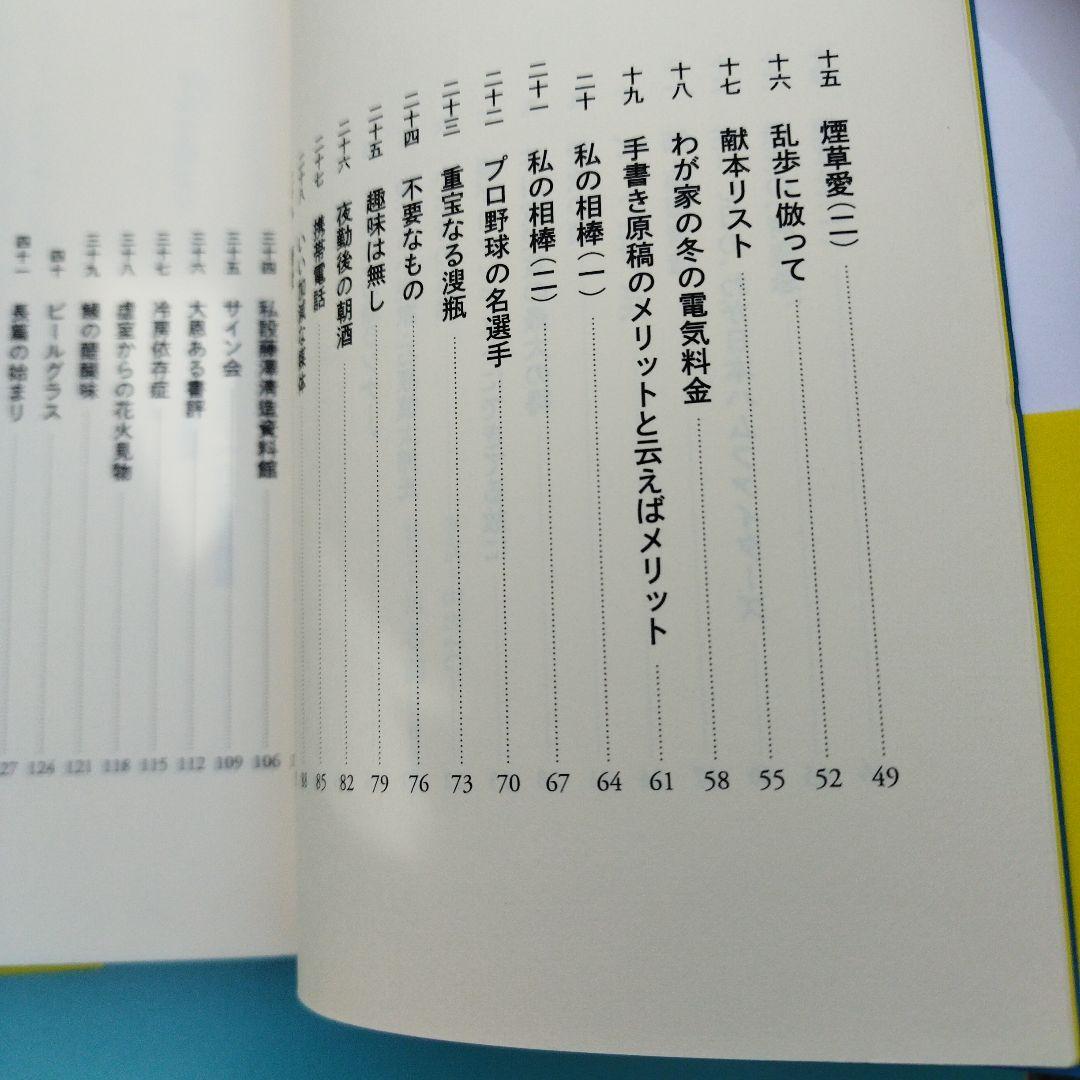 十五 煙草愛(二) 49
十六 乱歩に倣って 52
十七 献本リスト 55
十八 わが家の冬の電気料金 58
十九 手書き原稿のメリットと云えばメリット 61
二十 私の相棒(一) 64
二十一 私の相棒(二) 67
二十二 プロ野球の名選手 70
二十三 重宝なる溲瓶 73
二十四 不要なもの 76
二十五 趣味は無し 79
二十六 夜勤後の朝酒 82
二十七 携帯電話 85
二十八 88
三十四 私設藤澤清造資料館 106
三十五 サイン会 109
三十六 大恩ある書評 112
三十七 冷房依存症 115
三十八 虚室からの花火見物 118
三十九 の醍醐味 121
四十 ビールグラス 124
四十一 長篇の始まり 27